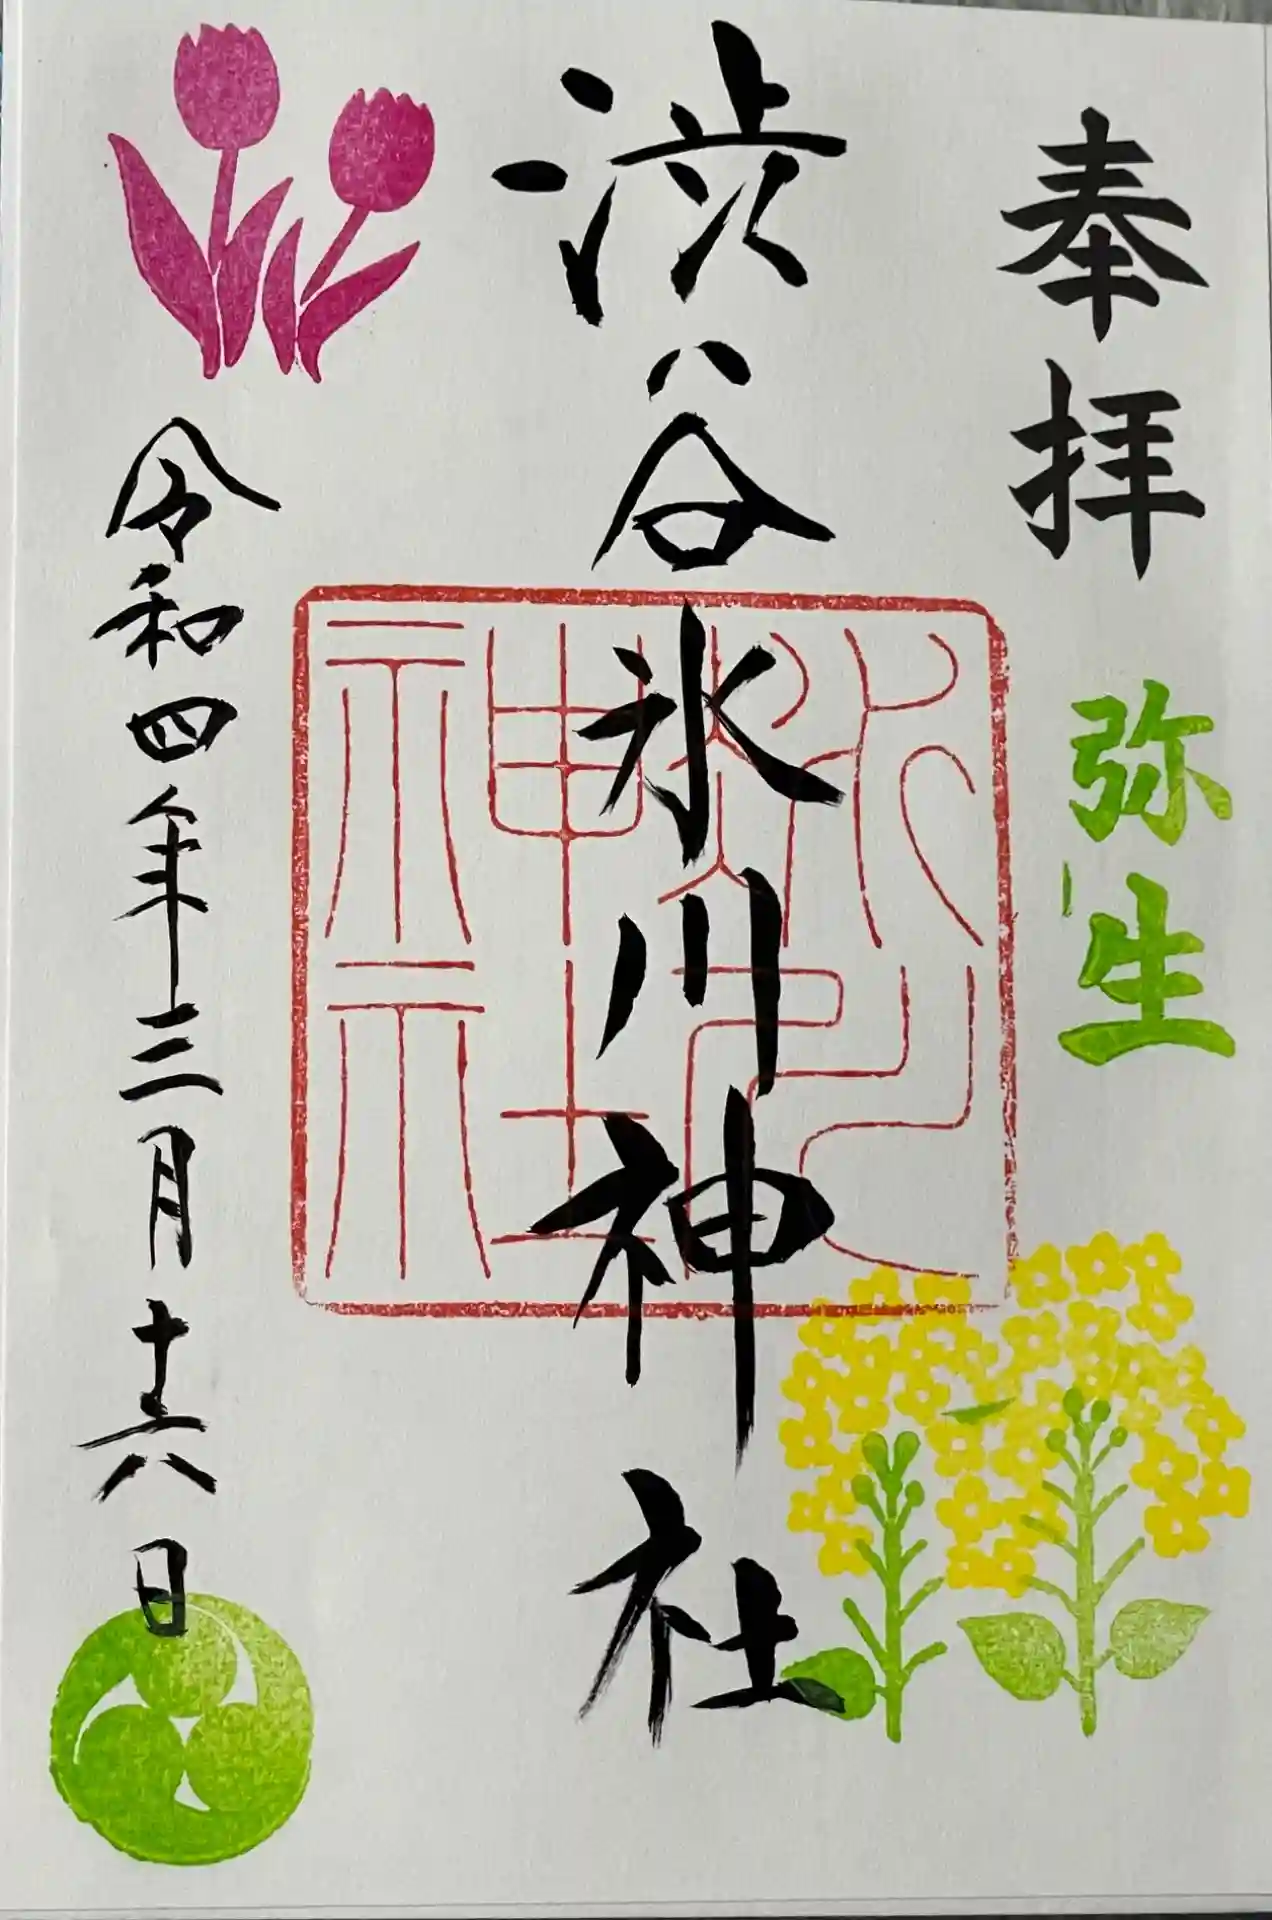 奉拝
弥生
渋谷氷川神社
氷川神社
令和四年三月十六日